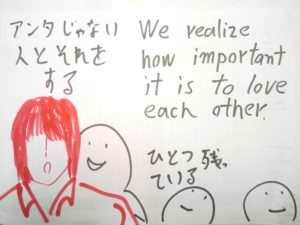 アンタじゃない
人とそれを
する
We realize
how important
it is to love
each other.
ひとつ残っ
ている